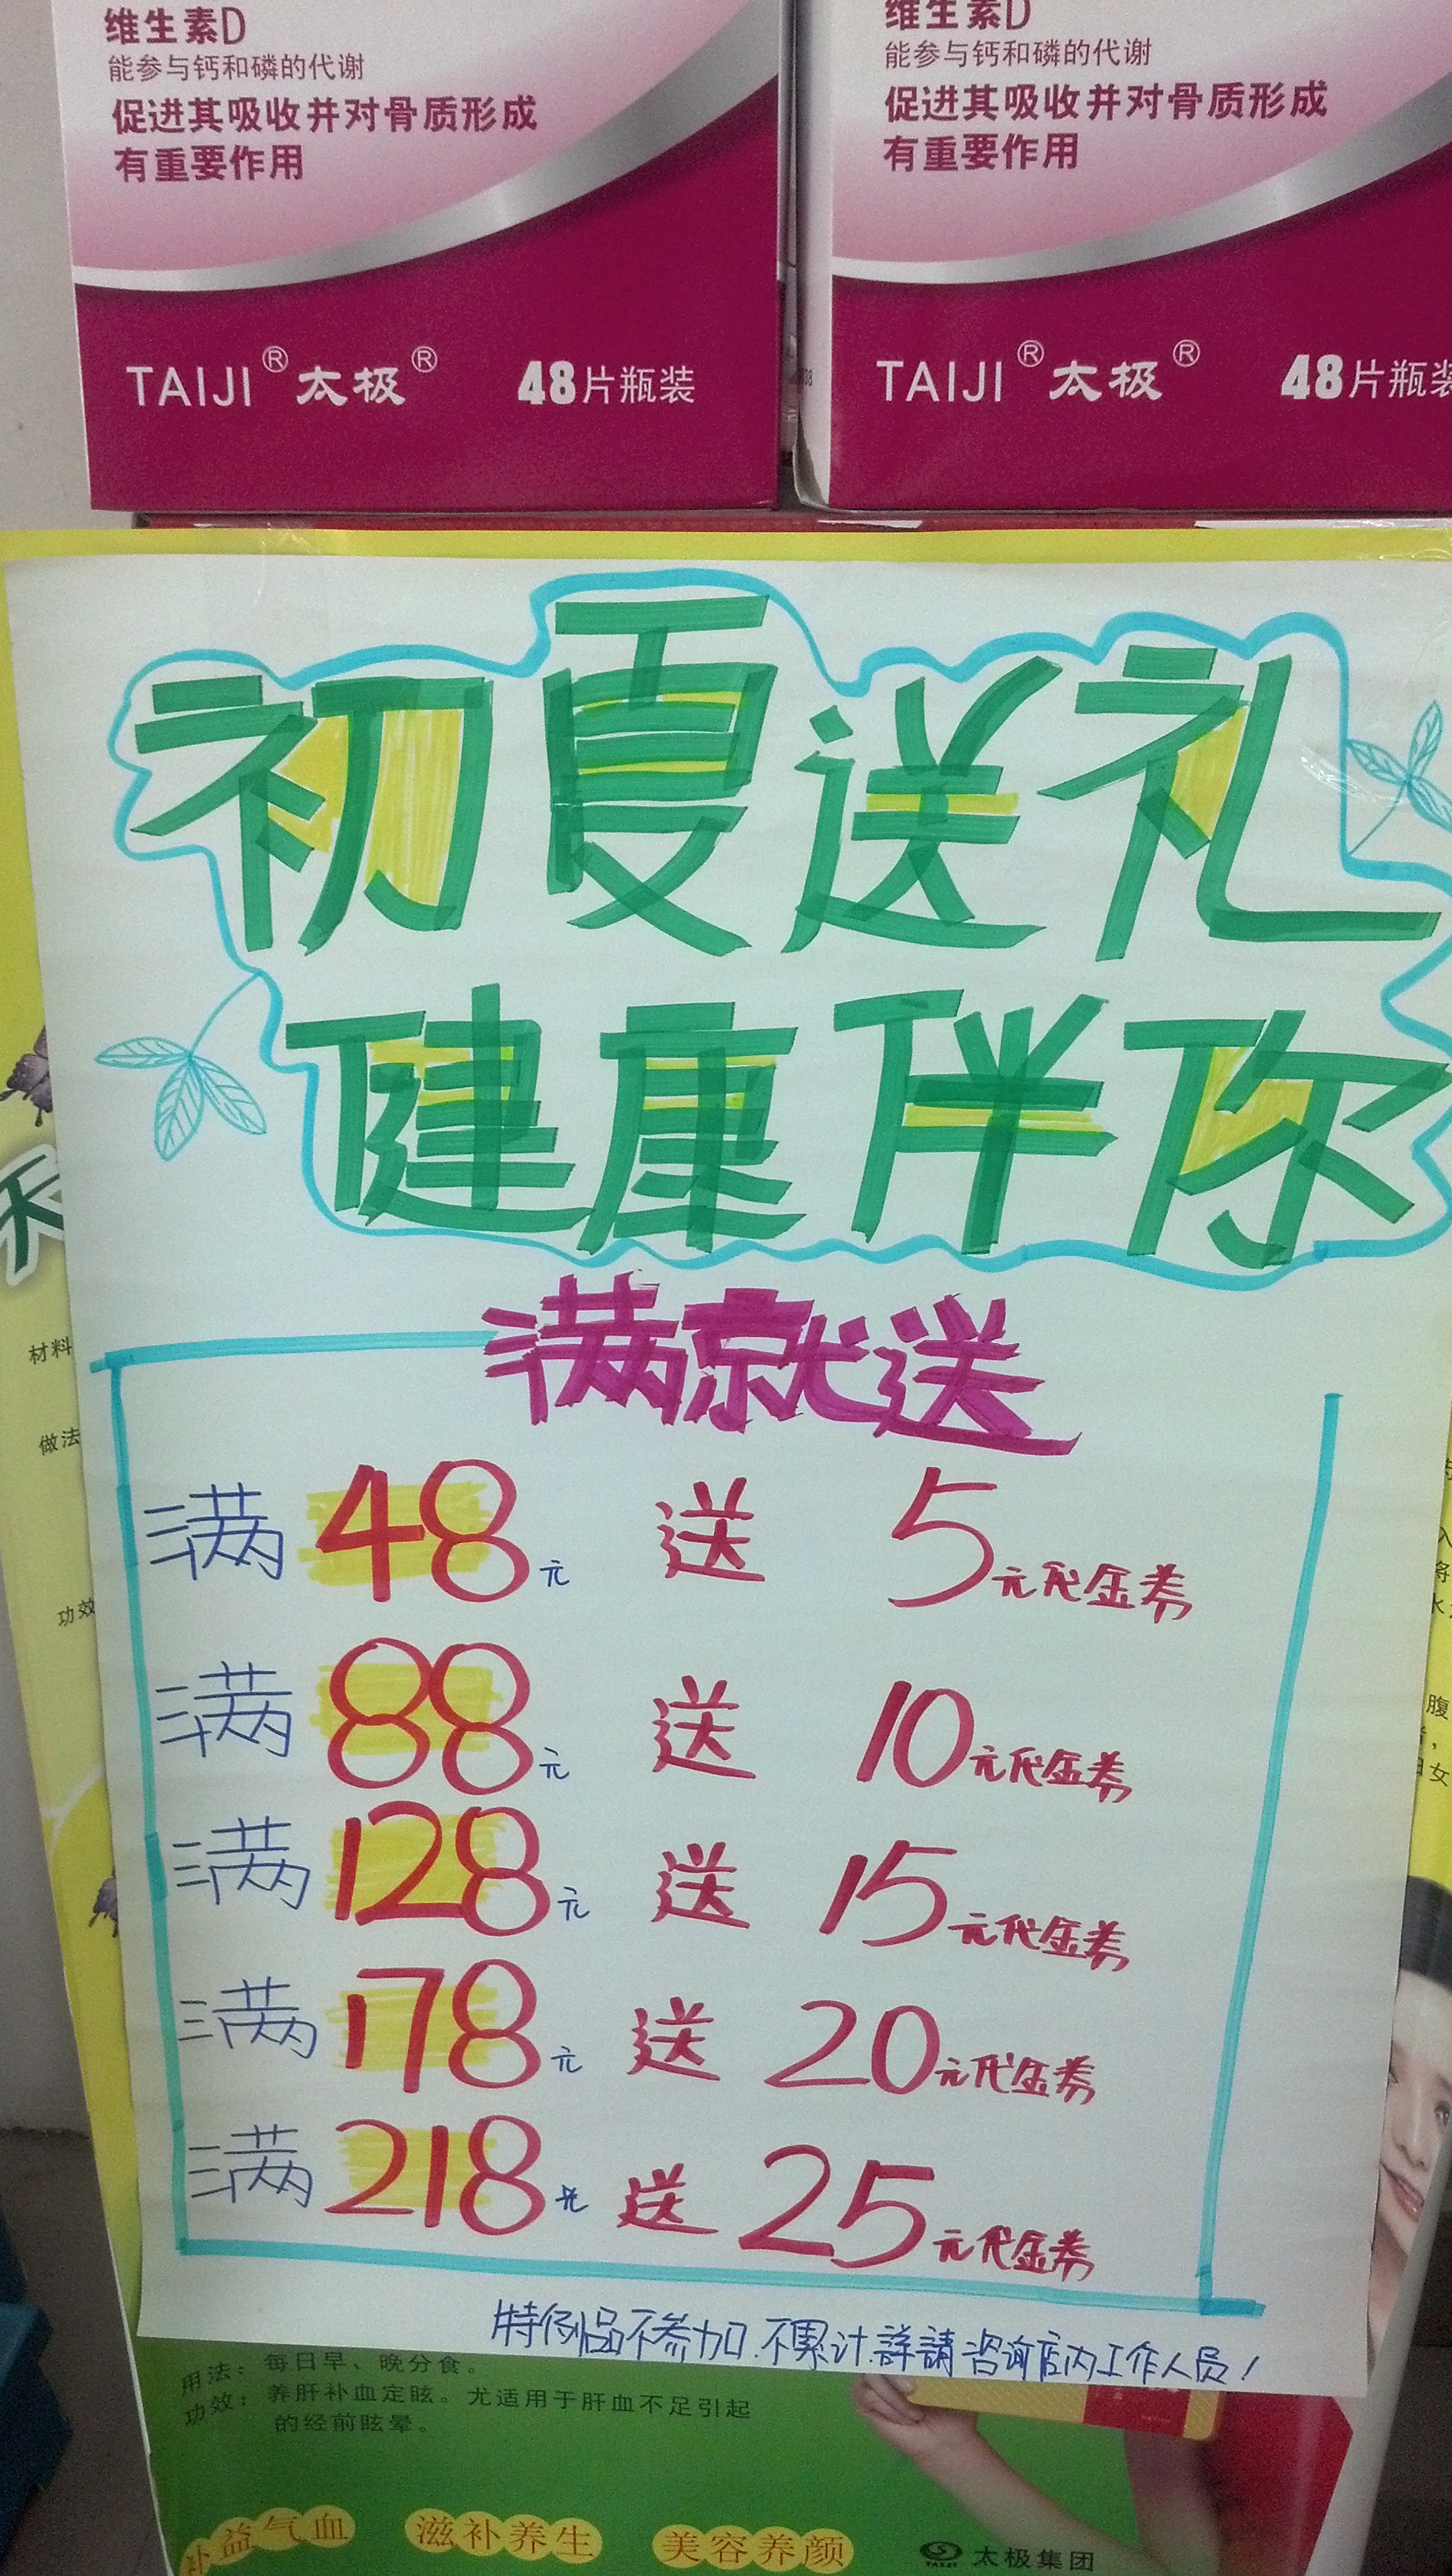 维生素D
能参与钙和磷的代谢
促进其吸收并对骨质形成
有重要作用
TAIJI® 太极® 48片瓶装
维生素D
能参与钙和磷的代谢
促进其吸收并对骨质形成
有重要作用
TAIJI® 太极® 48片瓶装
初夏送礼
健康伴你
满就送
满48元 送 5元代金券
满88元 送 10元代金券
满128元 送 15元代金券
满178元 送 20元代金券
满218元 送 25元代金券
特例品不参加.不累计.詳請咨询店内工作人员!
材料
做法
功效
腹
女
用法：每日早、晚分食。
功效：养肝补血定眩。尤适用于肝血不足引起
的经前眩晕。
补益气血 滋补养生 美容养颜 TAIJI 太极集团